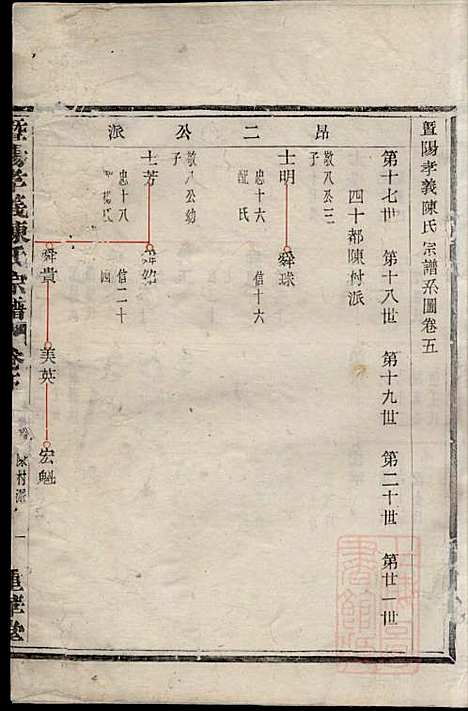 暨陽孝義陳氏宗譜系圖卷五
第十七世 第十八世 第十九世 第二十世 第廿一世
四十都陳村派
昂二公派
士明 舜球
敬八公三子
忠十六 信十六
士芳
敬八公幼子
忠十八 信二十
舜貴 美英 宏魁
暨陽孝義陳氏宗譜
陳村派
一